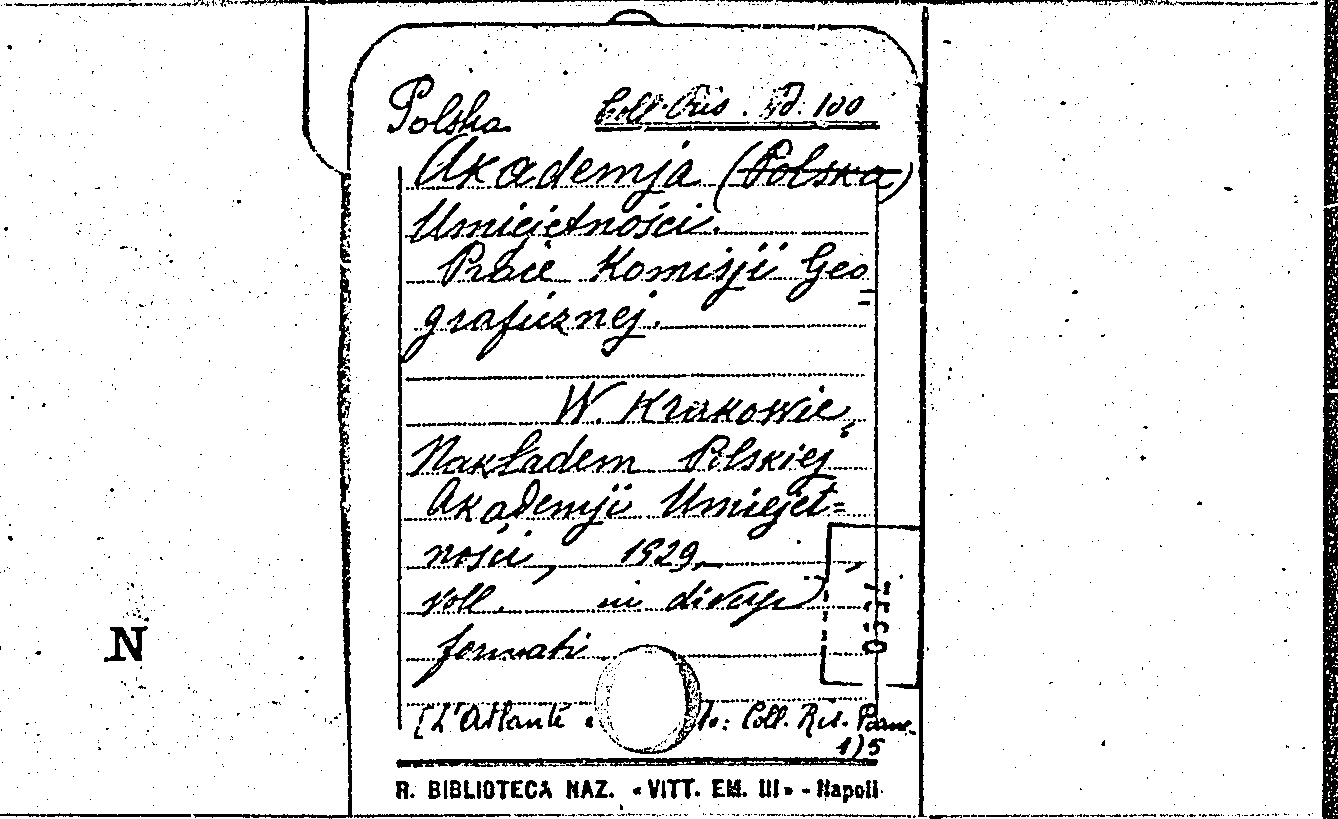 Polska
Coll. Ris. 100
Akademja (Polska)
Umiejetności.
Prace Komisji Geo=
graficznej.
W. Krakowie,
Nakładem Polskiej
Akademji Umiejet=
ności, 1929,
voll. in diversi
formati
[L'Atlante Coll. Ris. Pa
1)5
0337
N
R. BIBLIOTECA NAZ. «VITT. EM. III» - Napoli